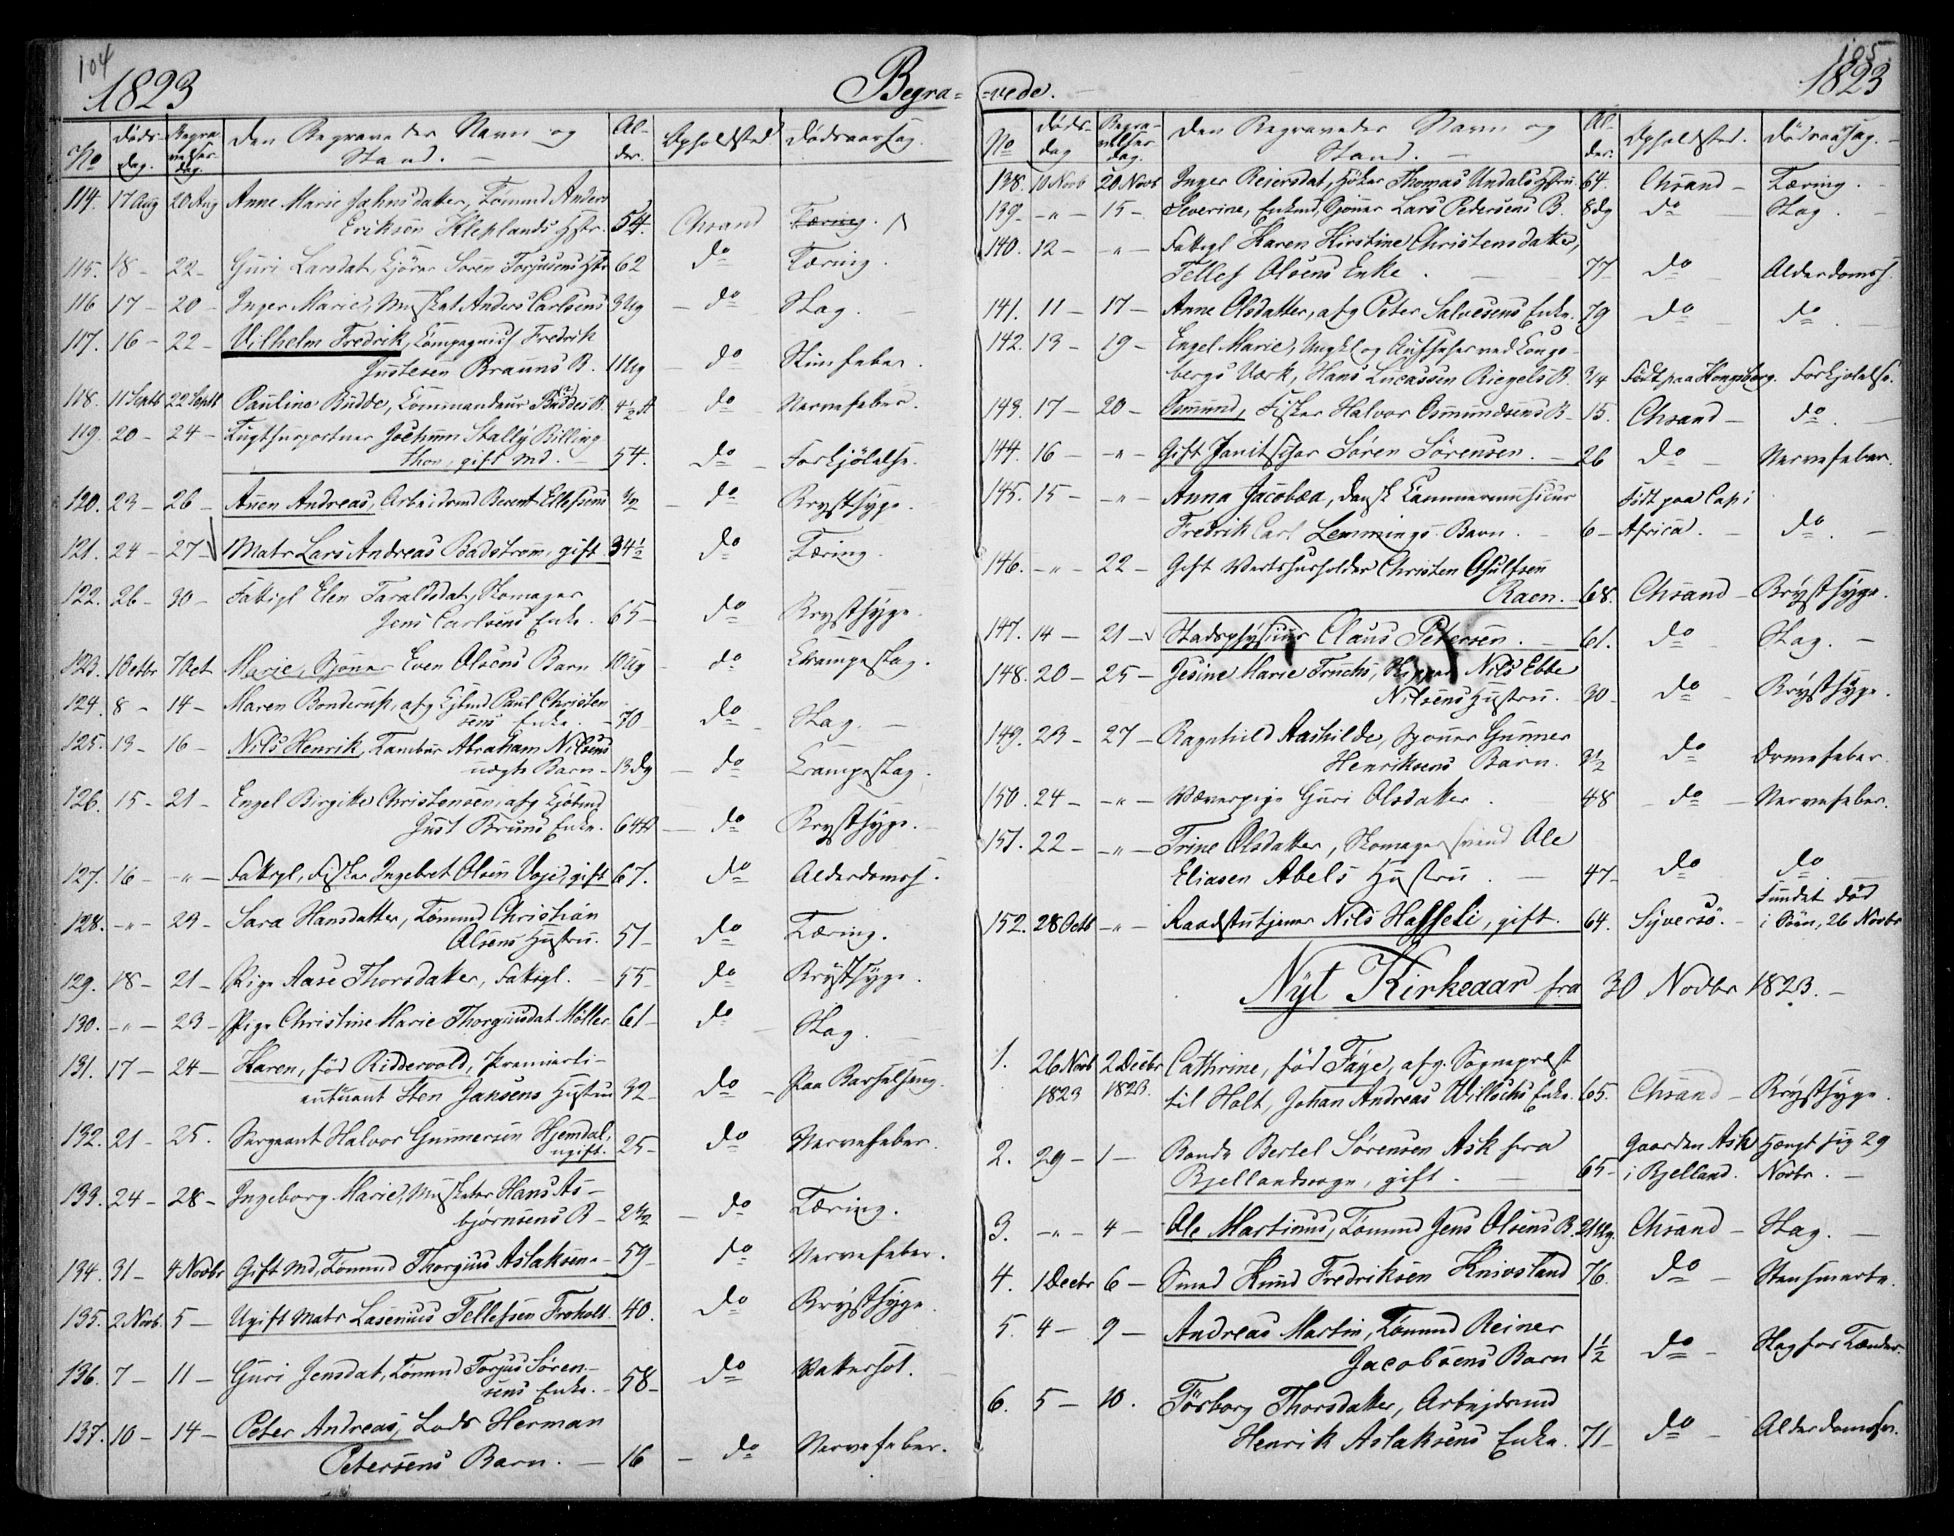 104
1823 Begra=
No Døds dag. Begra velses dag. Den Begravedes Navn og Stand. Al- der. Opholdsted Dødsaarsag.
114. 17 Aug 20 Aug Anne Marie Jahnsdatter, Tømmd Anders
Eriksøn Kleplands Hstr. 54. Chrand Tæring.
115. 18 - 22 - Guri Larsdat, Kjører Søren Torjusens Hstr 62 do Tæring.
116 17 - 20 - Inger Marie, Musket Anders Carlsens 3 Ug - do Slag.
117. 16 - 22 - Vilhelm Fredrik, Compagnief Fredrik
Justesen Brauns B. 11 Ug - do Stinfeber.
118. 11 Septb 22 Septb Pauline Budde, Commandeur Buddes B. 4½ do Nervefeber.
119. 20 - 24 - Tugthusportner Jochum Stally Billing
thon, gift Md. - 54. do - Forkjølelse.
120. 23 - 26 - Anen Andreas, Arbeidsmd Berent Ellefsens ½ - do Brystsyge.
121. 24 - 27 - Matr Lars Andreas Badstrøm, gift 34½ do Tæring.
122. 26 - 30 - Fattigl Elen Taraldsdat, Skomager
Jens Carlsens Enke. 65 - do Brystsyge.
123. 1 Octbr 7 Oct Marie, Bjømer Even Olsens Barn 10 Ug - do Krampeslag.
124. 8 - 14 - Maren Bonderup, afg Kjbmd Paul Christen
sens Enke. - 70 do - Slag. -
125. 13 - 16 - Nils Henrik, Tambur Abraham Nilsens
uægte Barn - 13 Dg - do Krampeslag.
126. 15 - 21 - Engel Birgitte Christensen, afg Kjøbmd
Just Bruuns Enke. 64 - do Brystsyge. -
127. 16 - -"- Fattigl, Fisker Ingebret Olsen Voje, gift 67. do Alderdomss.
128. -"- 23 - Sara Hansdatter, Tømmd Christian
Olsens Hustru. 51 - do Tæring.
129. 18 - 21 - Pige Aase Thorsdatter, Fattigl. - 55 - do Brystsyge.
130. -"- 23 - Pige Christine Marie Thorgiusdat Møller 61 - do Slag.
131. 17 - 24 - Karen, fød Riddervold, Premierli-
eutnant Sten Jansens Hustru 32 - do - Paa Barselseng.
132. 21 - 25. Sergeant Halvor Gunnersen Hjemdal,
ugift. 25 - do Nervefeber.
133. 24 - 28 - Ingeborg Marie, Musketer Hans As-
bjørnsens B - 2½ - do Tæring.
134. 31 - 4 Novbr Gift Md, Tømmd Thorgius Aslaksen - 59 - do Nervefeber.
135. 2 Novb. 5 - Ugift Matr Lasenius Tellefsen Froholt. 40. do Brystsyge.
136. 7 - 11 - Guri Jensdat, Tømmd Torjus Søren-
sens Enke. - 58 - do Vattersot.
137. 10 - 14 - Peter Andreas, Lods Herman
Petersens Barn. - 16 - do Nervefeber.
105
-vede. 1823
No Døds dag Begra- velses dag. Den Begravedes Navn og Stand. Al- der. Opholdsted. Dødsaarsag.
138. 10 Novb 20 Novb Inger Reiersdat, Høker Thomas Undals Hstru. 64. Chrand - Tæring. -
139. -"- 15 - Severine, Enkmd, Bjømer Lars Pedersens B. 8 Dg do - Slag. -
140. 12 - -"- Fattigl Karen Kirstine Christensdatter,
Tellef Olsens Enke. 77 do - Alderdomss.
141. 11 - 17 - Anne Olsdatter, afg Peter Salvesens Enke. 79 do - do. -
142. 13 - 19 - Engel Marie, Ungkl og Aufseher ved Kongs-
bergs Værk, Hans Lucassen Riegels B. 3/4 Født paa Kongsberg. Forkjølelse.
143. 17 - 20 - Osmund, Fisker Halvor Osmundsens B - 15. Chrand - do. -
144. 16 - -"- Gift Janitschar Søren Sørensen. - 26 do - Nervefeber.
145. 15 - -"- Anna Jacobæa, Dansk Kammermusicus Født paa Cap i
Fredrik Carl Lemmings Barn. - 6 - Africa. - do. -
146. -"- 22 - Gift Vertshusholder Christen Gjulfsen
Raen. - 68. Chrand - Brystsyge.
147. 14 - 21 - Stadsphysicus Claus Petersen. - 61. do - Slag. -
148. 20 - 25 - Jesine Marie Truchs, Skipper Nils Ebbe
Nilsens Hustru. 30 - do - Brystsyge.
149. 23 - 27 - Ragnhild Aashilde, Bjømer Gunner
Henriksens Barn. 3½ do - Ormefeber.
150. 24 - -"- Væverpige Guri Olsdatter. - 48 - do - Nervefeber.
151. 22 - -"- Trine Olsdatter, Skomagersvend Ole
Eliasen Abels Hustru. - 47 - do do
152. 28 Octb -"- Raadstutjener Nils Hasseli, gift. 64. Syversø. - Fundet død
i Søen, 26 Novbr
Nyt Kirkeaar fra 30 Novbr 1823. -
1. 26 Novb 1823 2 Decbr 1823. Cathrine, fød Faye, afg. Sognepræst
til Holt, Johan Andreas Willochs Enke. 65. Chrand - Brystsyge.
2. 29 - 1 - Bonde Bertel Sørensen Ask fra Gaarden Ask Hængt sig 29
Bjellandsogn, gift. - 65 - i Bjelland. Novbr. -
3. -"- 4 - Ole Martinus, Tømmd Jens Olsens B. 21 Ug. Chrand - Slag. -
4. 1 Decbr 6 - Smed Knud Fredriksen Knivsland 76. do - Stensmerte.
5. 4 - 9 - Andreas Martin, Tømmd Reiner
Jacobsens Barn 1½ do - Slag for Tænder.
6. 5 - 10. Torborg Thorsdatter, Arbejdsmd
Henrik Aslaksens Enke. 71 - do - Alderdomss.